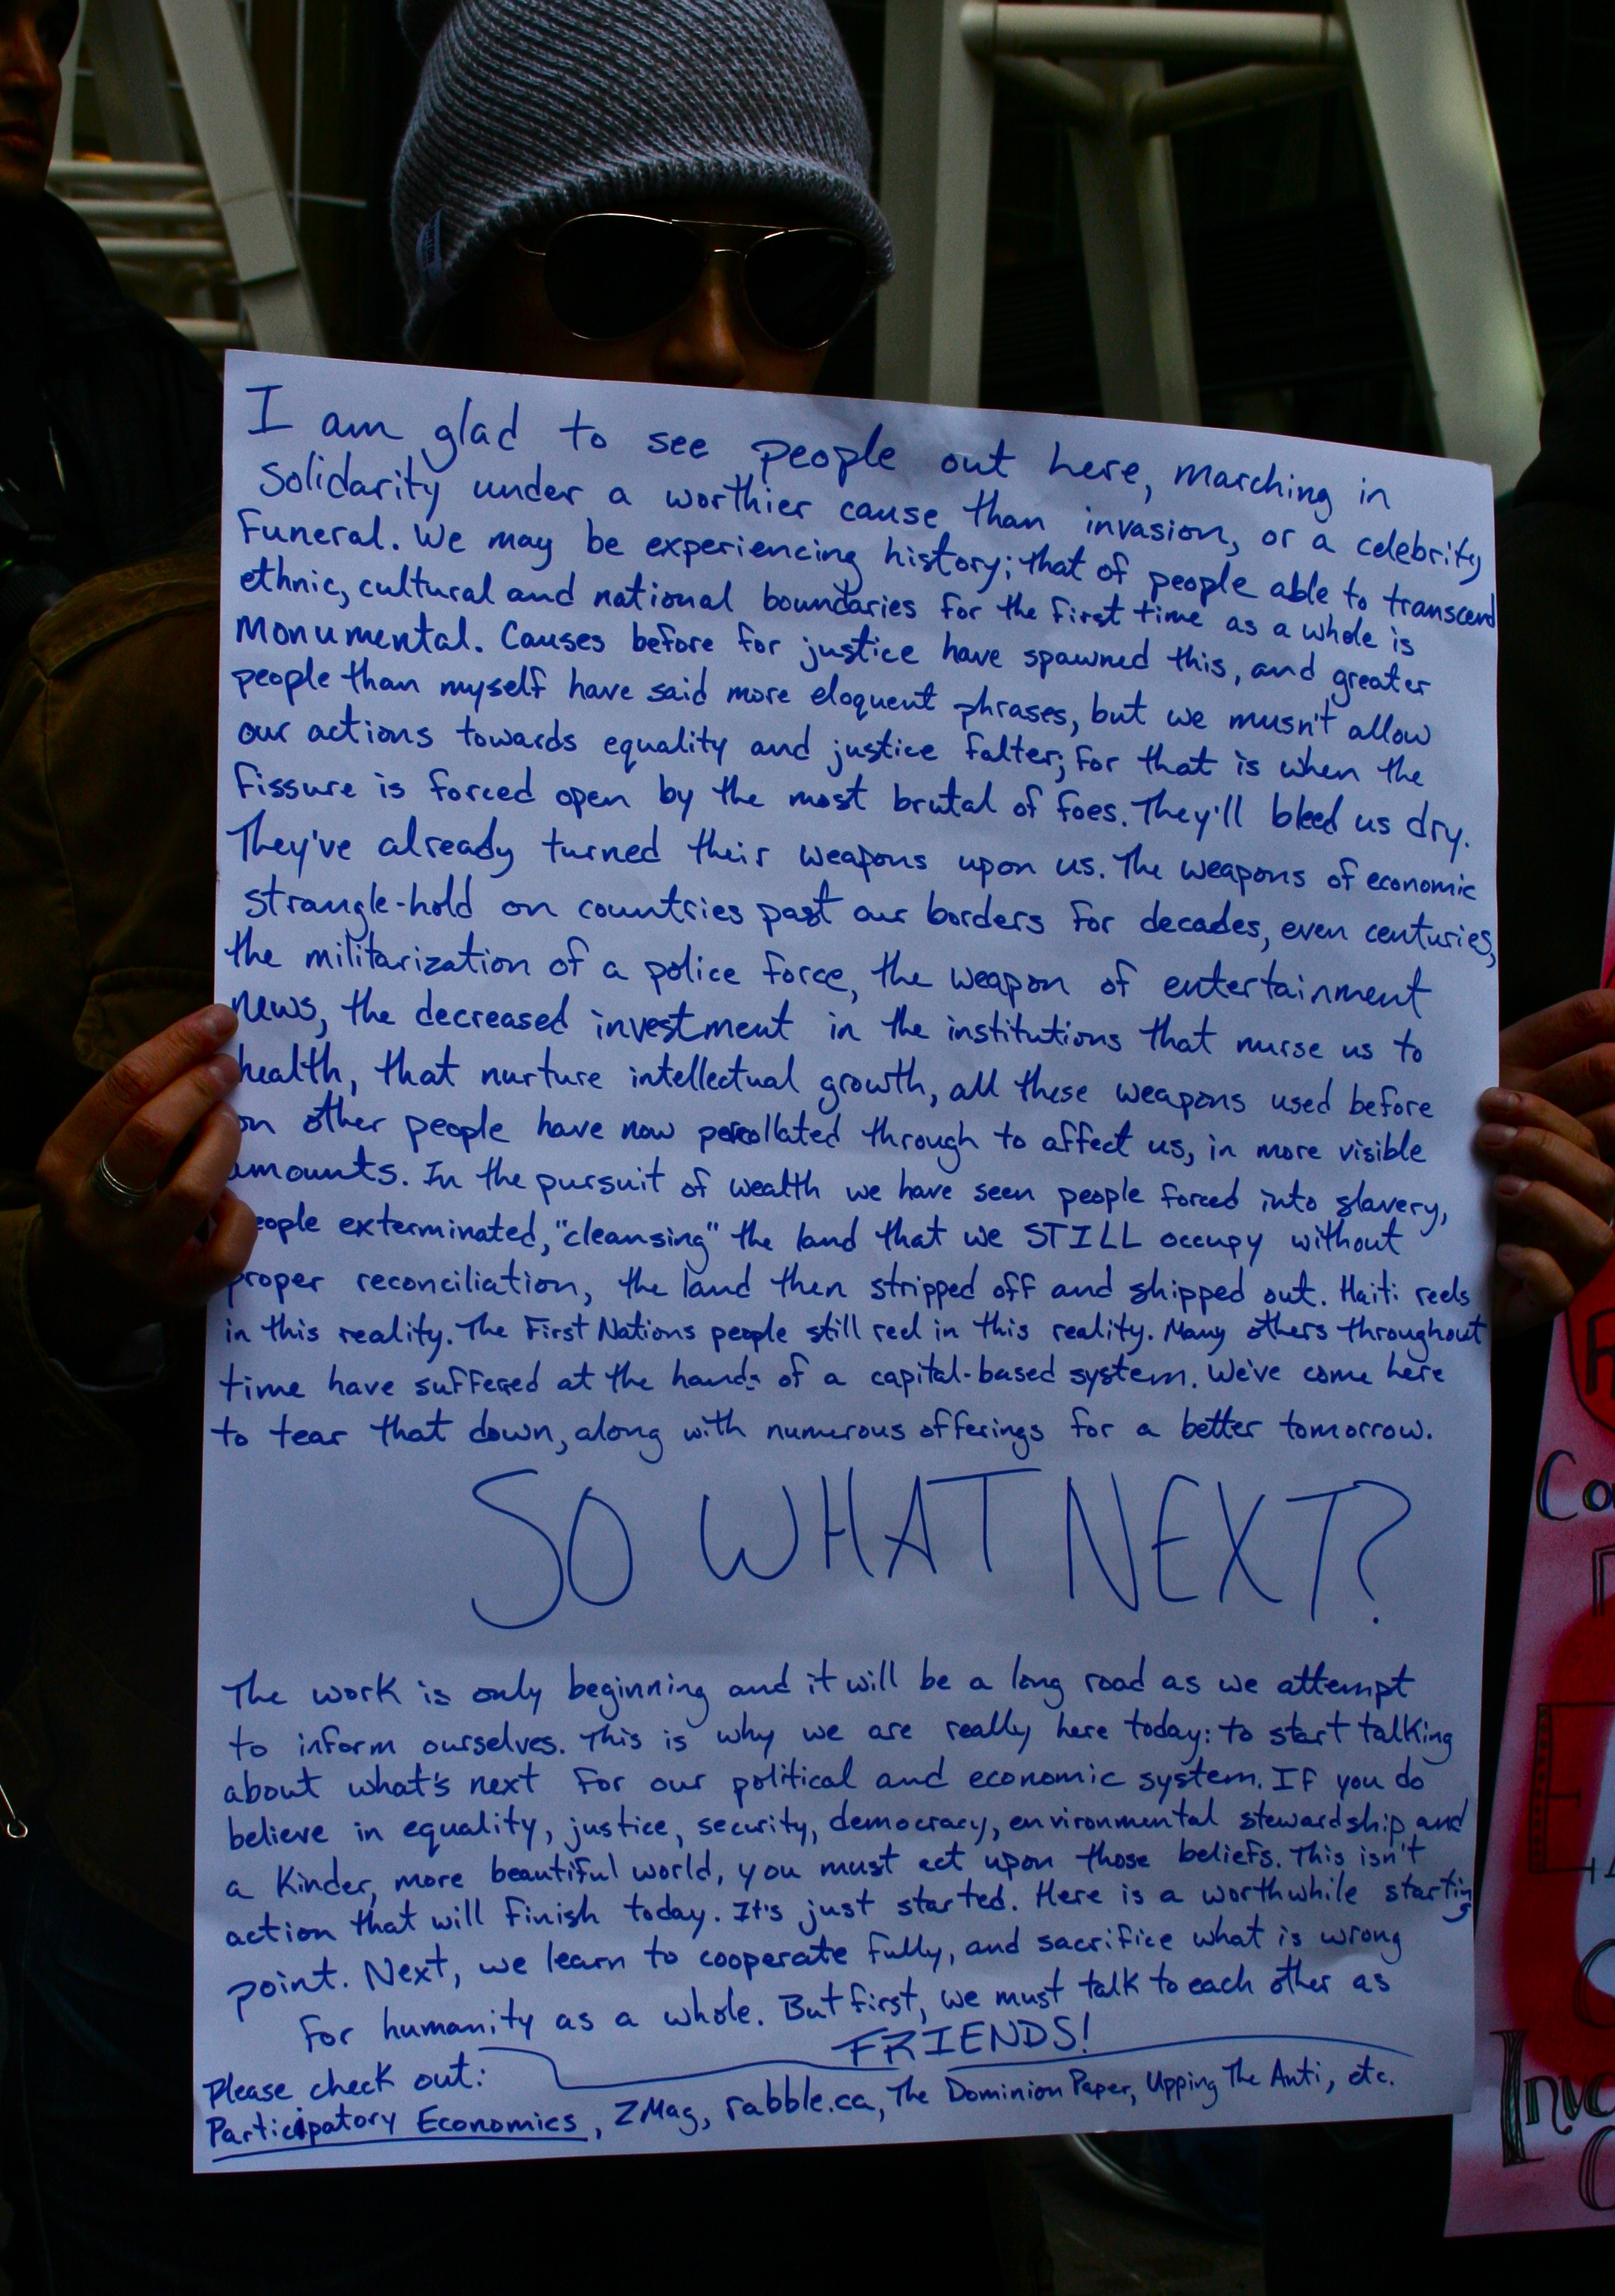 I am glad to see people out here, marching in
solidarity under a worthier cause than invasion, or a celebrity
funeral. We may be experiencing history; that of people able to transcend
ethnic, cultural and national boundaries for the first time as a whole is
monumental. Causes before for justice have spawned this, and greater
people than myself have said more eloquent phrases, but we musn't allow
our actions towards equality and justice falter; for that is when the
fissure is forced open by the most brutal of foes. They'll bleed us dry.
They've already turned their weapons upon us. The weapons of economic
strangle-hold on countries past our borders for decades, even centuries,
the militarization of a police force, the weapon of entertainment
news, the decreased investment in the institutions that nurse us to
health, that nurture intellectual growth, all these weapons used before
on other people have now percollated through to affect us, in more visible
amounts. In the pursuit of wealth we have seen people forced into slavery,
eople exterminated, "cleansing" the land that we STILL occupy without
proper reconciliation, the land then stripped off and shipped out. Haiti reels
in this reality. The First Nations people still reel in this reality. Many others throughout
time have suffered at the hands of a capital-based system. We've come here
to tear that down, along with numerous offerings for a better tomorrow.
SO WHAT NEXT?
The work is only beginning and it will be a long road as we attempt
to inform ourselves. This is why we are really here today: to start talking
about what's next for our political and economic system. If you do
believe in equality, justice, security, democracy, environmental stewardship and
a kinder, more beautiful world, you must act upon those beliefs. This isn't
action that will finish today. It's just started. Here is a worthwhile starting
point. Next, we learn to cooperate fully, and sacrifice what is wrong
for humanity as a whole. But first, we must talk to each other as
FRIENDS!
Please check out:
Participatory Economics, ZMag, rabble.ca, The Dominion Paper, Upping The Anti, etc.